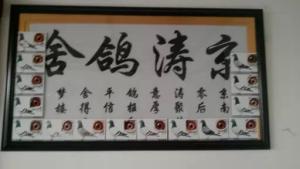 京涛鸽舍
京南
零后
涛聚
意厚
鸽祖
平信
舍得
梦楼